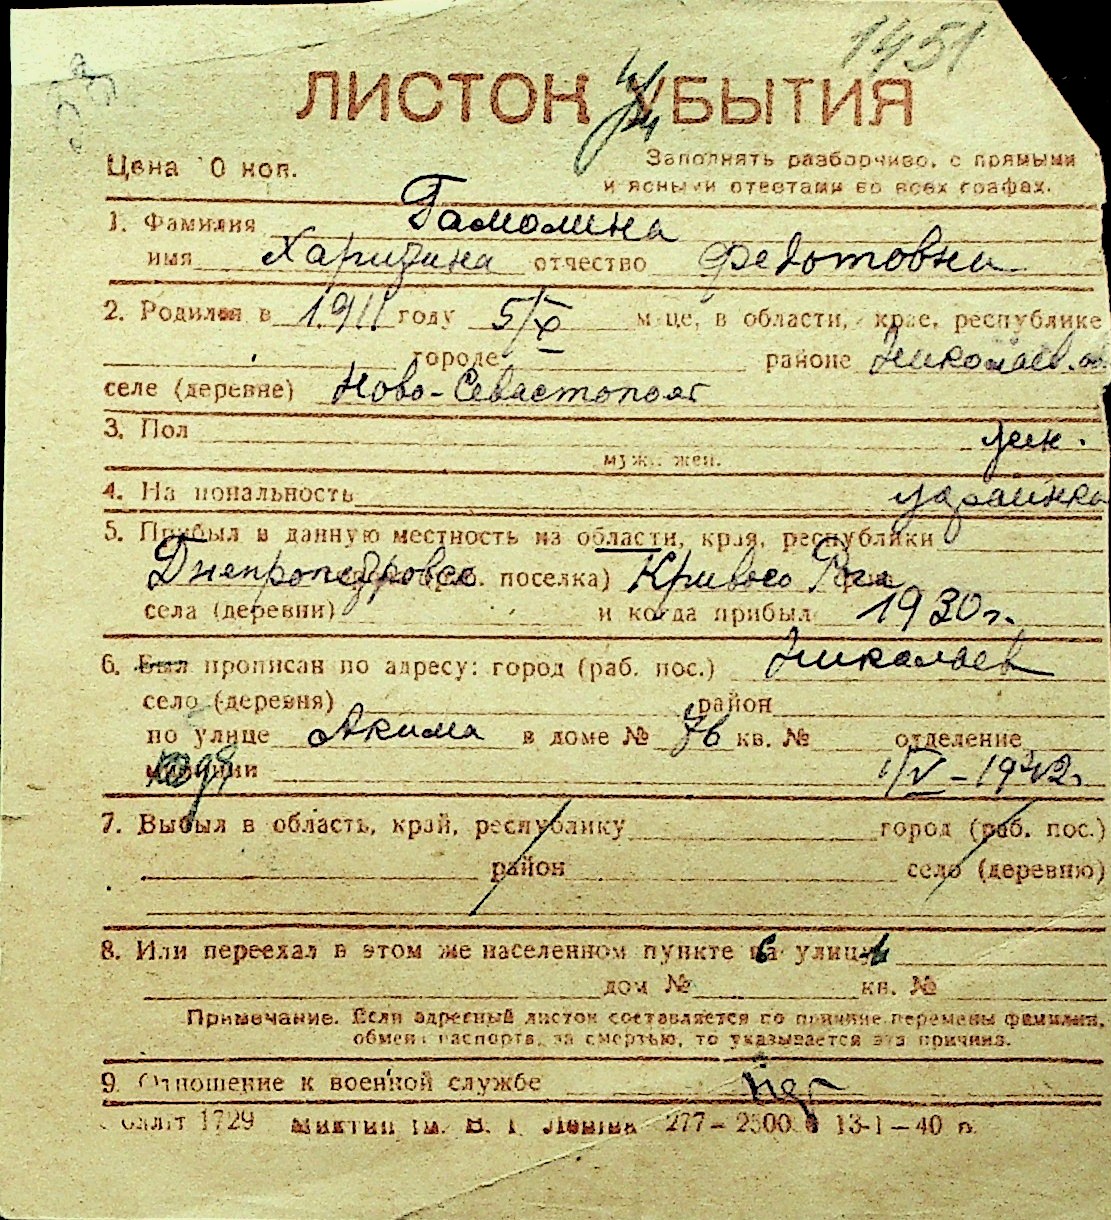 1451
ЛИСТОК УБЫТИЯ
Цена 10 коп.
Заполнять разборчиво, с прямыми
и ясными ответами во всех графах.
1. Фамилия Гамолина
имя Харитина отчество Федотовна
2. Родился в 1911 году 5/X м-це, в области, крае, республике
городе районе Николаев. об.
селе (деревне) Ново-Севастополь
3. Пол жен.
муж. жен.
4. Национальность украинка
5. Прибыл в данную местность из области, края, республики
Днепропетровск поселка) Кривого Рога
села (деревни) и когда прибыл 1930 г.
6. Был прописан по адресу: город (раб. пос.) Николаев
село (деревня) район
по улице Акима в доме № 76 кв. № отделение
милиции 1/V – 1942 г.
7. Выбыл в область, край, республику город (раб. пос.)
район село (деревню)
8. Или переехал в этом же населенном пункте на улицу
дом № кв. №
Примечание. Если адресный листок составляется по причине перемены фамилии,
обмена паспорта, за смертью, то указывается эта причина.
9. Отношение к военной службе
1729 277 – 2500 13-I – 40 г.